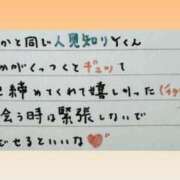 かと同じ人見知りYくん
めがくっつくとギュッて
き締めてくれて嬉しかった
会う時は緊張しないで
でせるといいな♥